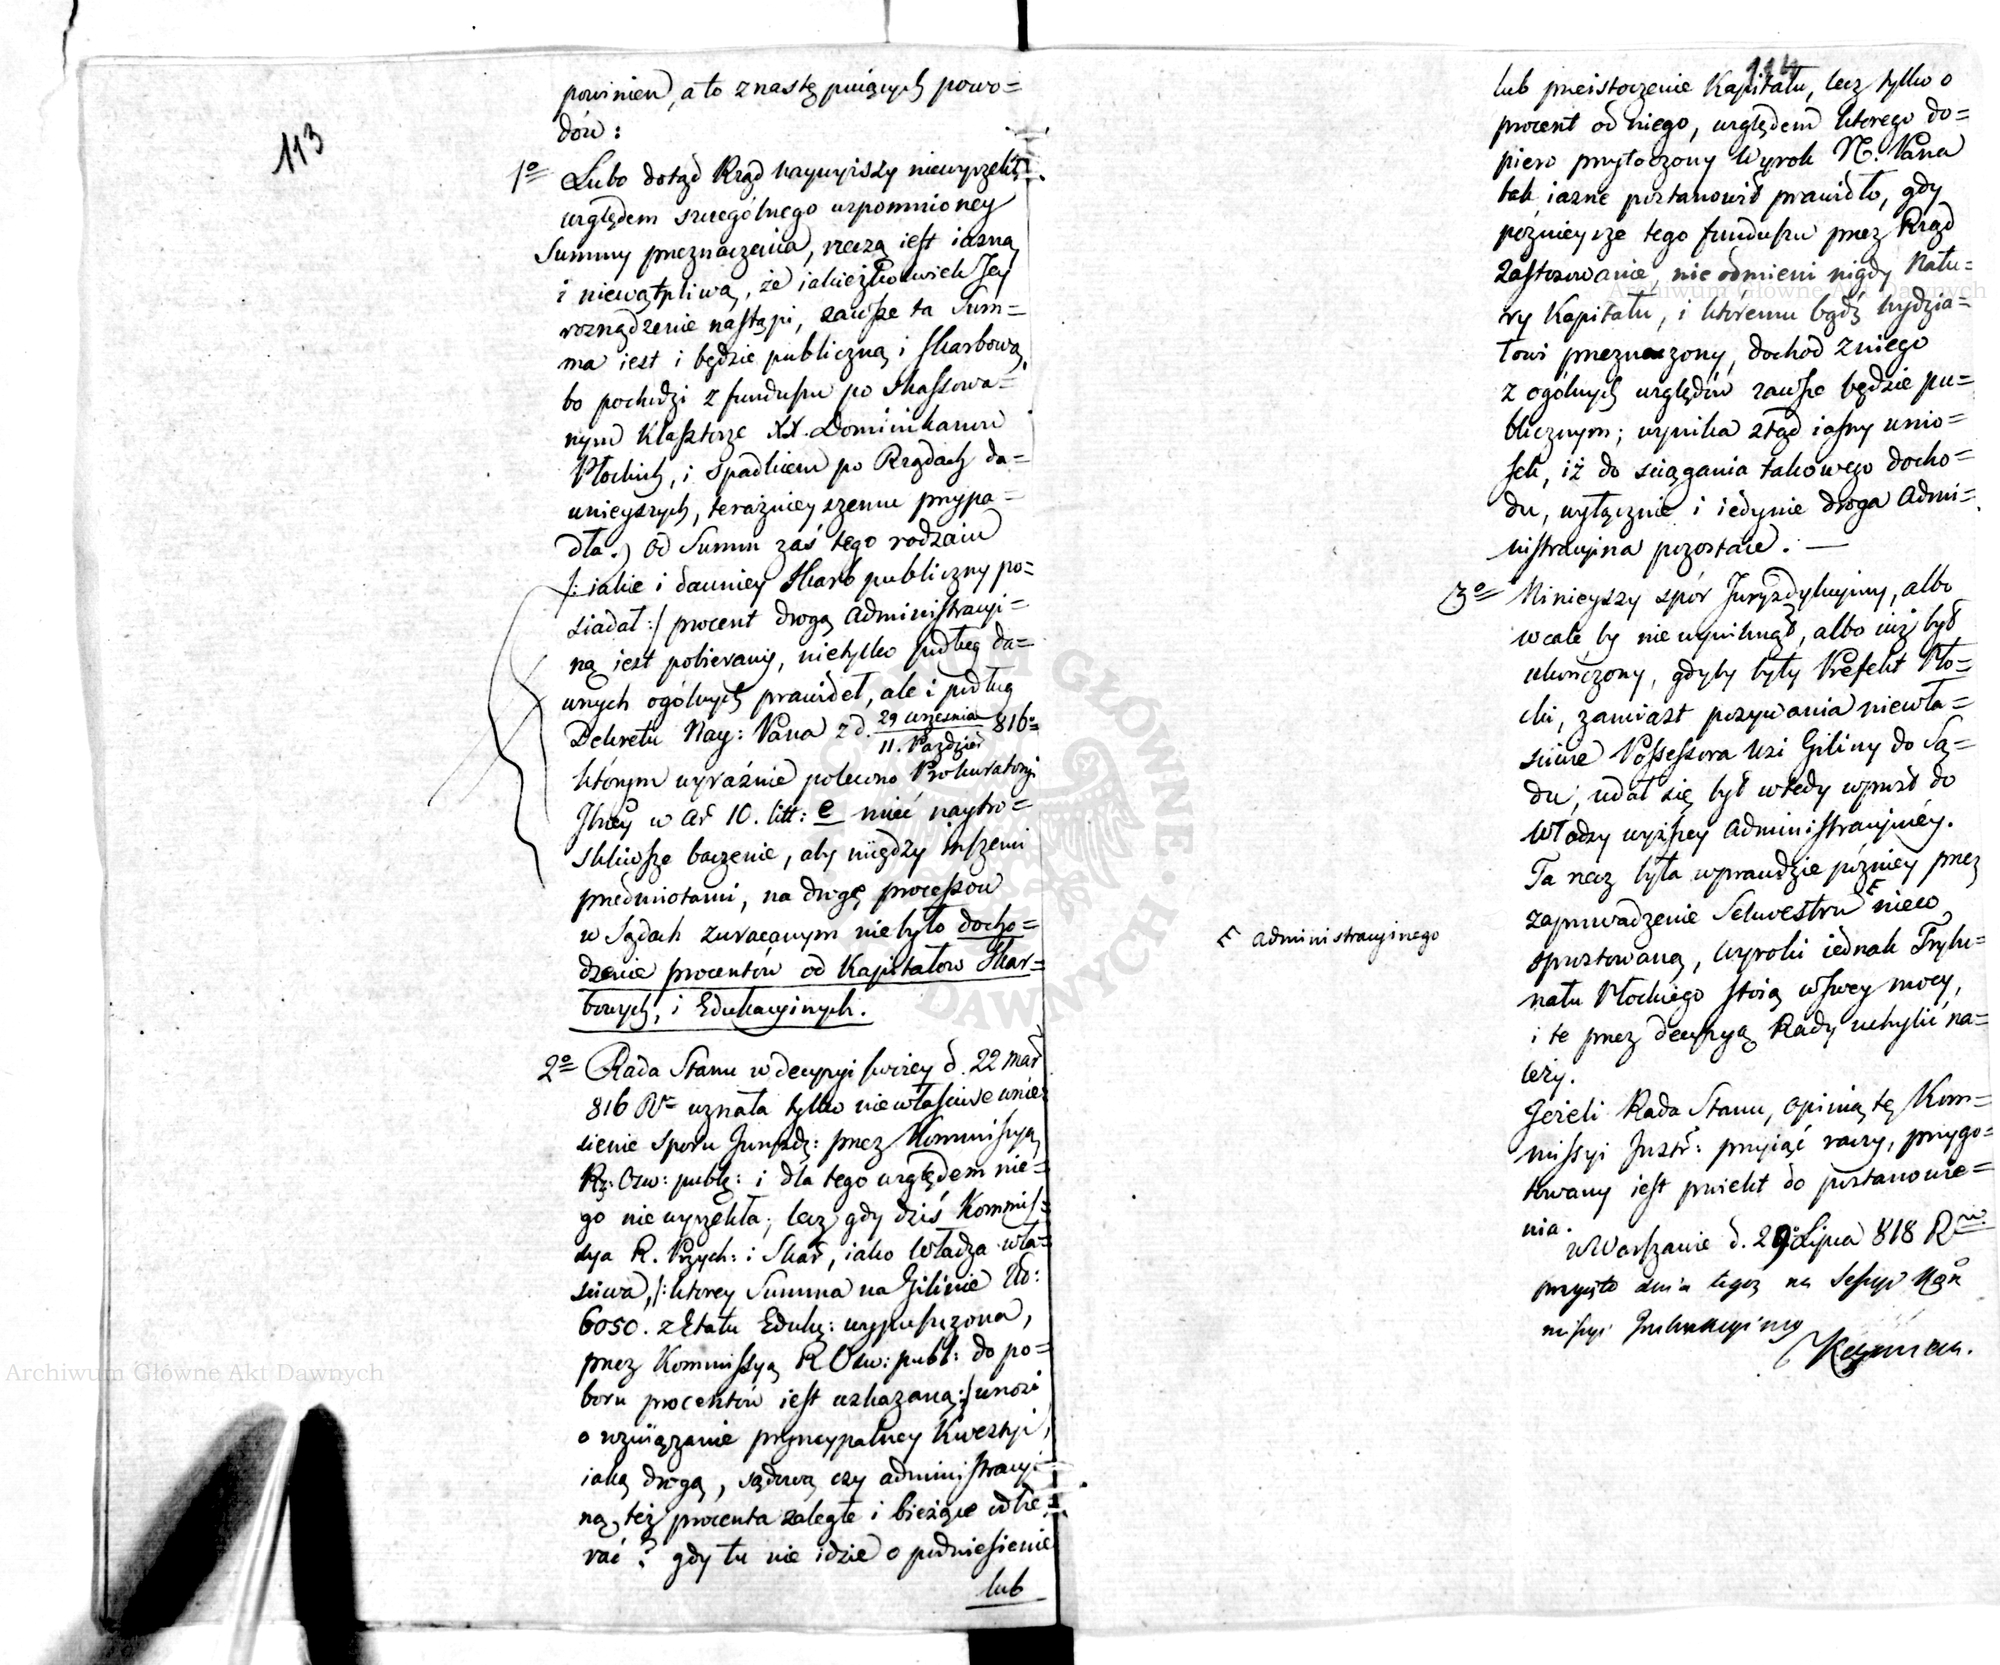 113
powinien, a to z następuiących powo=
dów:
1o Lubo dotąd Rząd naywyższy niewyrzekł
względem szczególnego wspomnioney
Summy przeznaczenia, rzeczą iest iasną
i niewątpliwą, że iakieżkolwiek Jey
rozrządzenie nastąpi, zawsze ta Sum=
ma iest i będzie publiczną i skarbową,
bo pochodzi z funduszu po skassowa=
nym Klasztorze XX. Dominikanów
Płockich, i spadkiem po Rządach da=
wnieyszych, teraźnieyszemu przypa=
dła.) Od Summ zaś tego rodzaiu
/: iakie i dawniey Skarb publiczny po=
siadał :/ procent drogą administracyi=
ną iest pobierany, nietylko podług da=
wnych ogólnych prawideł, ale i podług
Dekretu Nay: Pana z d. 29 Września 816o
11. Paździer
którym wyraźnie polecono Prokuratoryi
Jlney w Ar 10. litt: e mieć naytro=
skliwsze baczenie, aby między inszemi
przedmiotami, na drogę processów
w Sądach zwracanym niebyło docho=
dzenie procentów od Kapitałów Skar=
bowych, i Edukacyinych.
2o Rada Stanu w decyzyi swoiey d. 22 Mar
816 Ru uznała tylko niewłaściwe wnie=
sienie sporu Juryzdy: przez Kommissyą
Rz: Ośw: publ: i dla tego względem nie=
go nie wyrzekła; lecz gdy dziś Kommis=
sya R. Przych: i Skar, iako Władza wła=
ściwa, /: którey Summa na Gilinie Tal:
6050. z Etatu Eduk: wypuszczona,
przez Kommissyą R Ośw: publ: do po=
boru procentów iest wskazaną :/ wnosi
o rozwiązanie pryncypalney Kwestyi,
iaką drogą, sądową czy administracyi=
ną, też procenta zaległe i bieżące odbie=
rać? gdy tu nie idzie o podniesienie
lub
114
lub przeistoczenie Kapitału, lecz tylko o
procent od niego, względem którego do=
piero przytoczony Wyrok N. Pana
tak iasne postanowił prawidło, gdy
późnieysze tego funduszu przez Rząd
zastosowanie, nie odmieni nigdy Natu=
ry Kapitału, i któremu bądź wydzia=
łowi przeznaczony, dochód z niego
z ogólnych względów zawsze będzie pu=
blicznym; wynika ztąd iasny wnio=
sek, iż do ściągania takowego docho=
du, wyłącznie i iedynie droga Admi=
nistracyina pozostaie. —
3o Ninieyszy spór Juryzdykcyiny, albo
wcale by nie wyniknął, albo iuż był
ukończony, gdyby były Prefekt Pło=
cki, zamiast pozywania niewła=
ściwie Possessora Wsi Giliny do Są=
du, udał się był wtedy wprost do
Władzy wyższey Administracyiney.
Ta rzecz była wprawdzie późniey przez
zaprowadzenie Sekwestru F nieco
F administracyinego
sprostowaną, wyroki iednak Trybu=
nału Płockiego stoią w swey mocy,
i te przez decyzyą Rady uchylić na=
leży.
Jeżeli Rada Stanu, opinią tę Kom=
missyi Instr: przyiąć raczy, przygo=
towany iest proiekt do postanowie=
nia.
w Warszawie d. 29 Lipca 818 Ru
przyięto dnia tegoż na Sessyi Kom
missyi Instrukcyiney